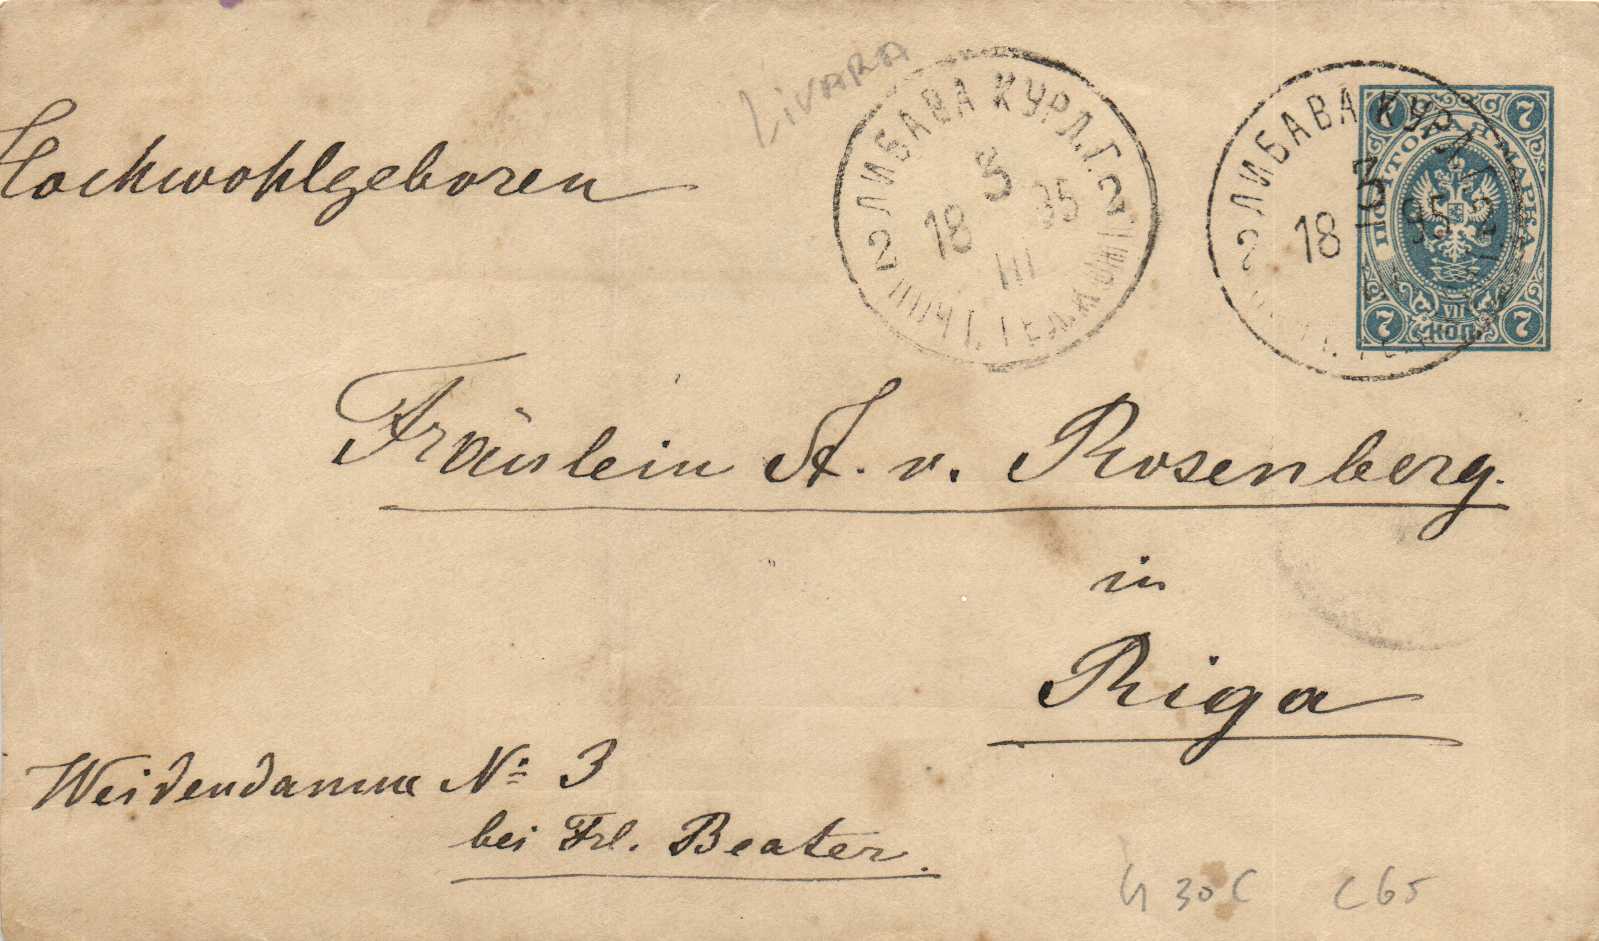 LIVARA
ЛИБАВА КУРЛ.Г.
2 2
3
18 95
III
ПОЧТ. ТЕЛ.
ЛИБАВА КУРЛ.
2 2
3
18 95
7 7
ПОЧТОВАЯ МАРКА
VII
7 КОП. 7
Hochwohlgeboren
Fräulein A. v. Rosenberg.
in
Riga
Weidendamm No 3
bei Frl. Beater.
30 C C65